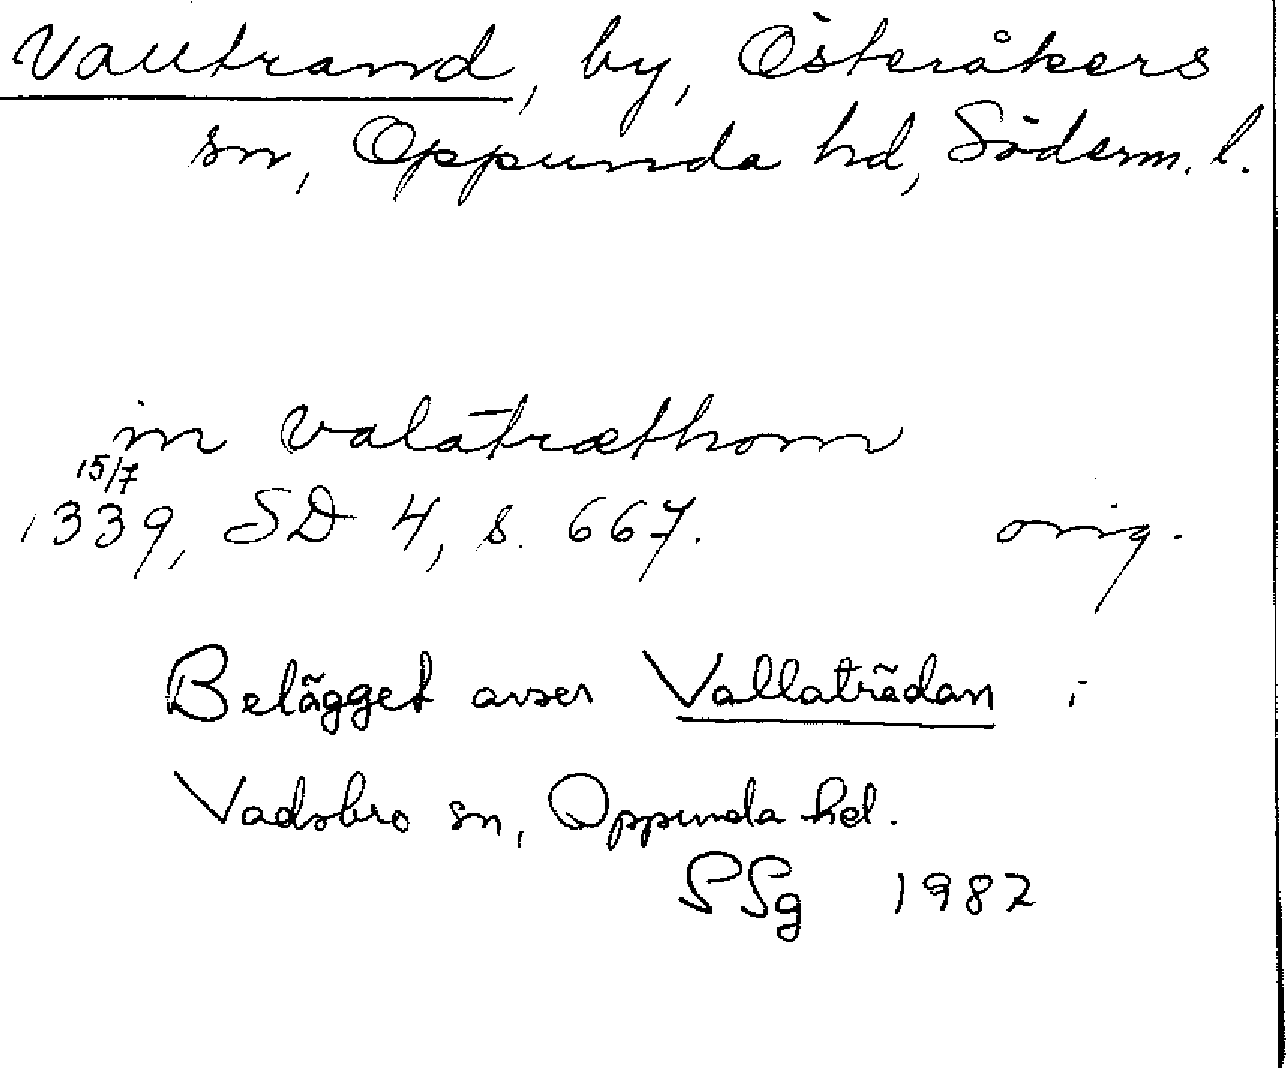 Valltrand, by, Österåkers
sn, Oppunda hd, Söderm. l.
in valatræthom
15/7
1339, SD 4, s. 667. orig.
Belägget avser Vallaträdan i
Vadsbro sn, Oppunda hd.
SSg 1982